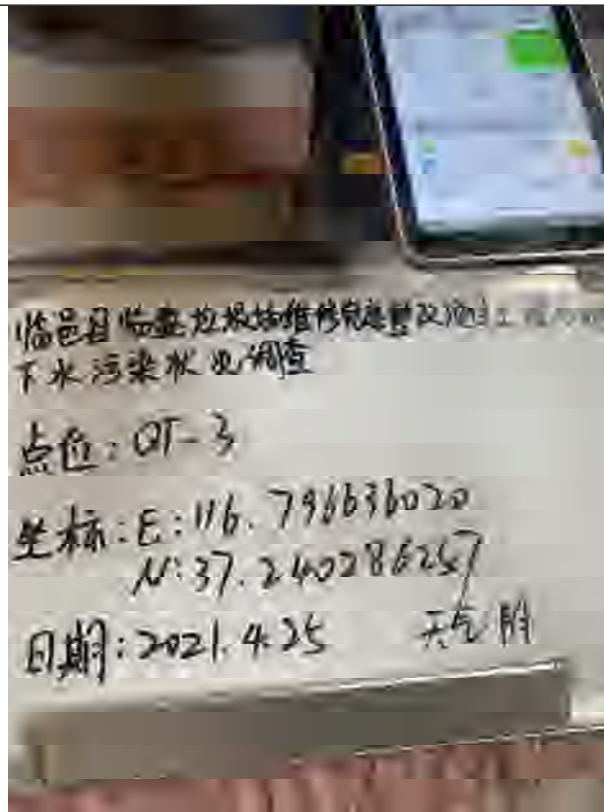 临邑县临盘垃圾场维修完善整改项目工程
下水污染状况调查
点位:QT-3
坐标:E:116.796636020
N:37.240286257
日期:2021.4.25 天气 阴